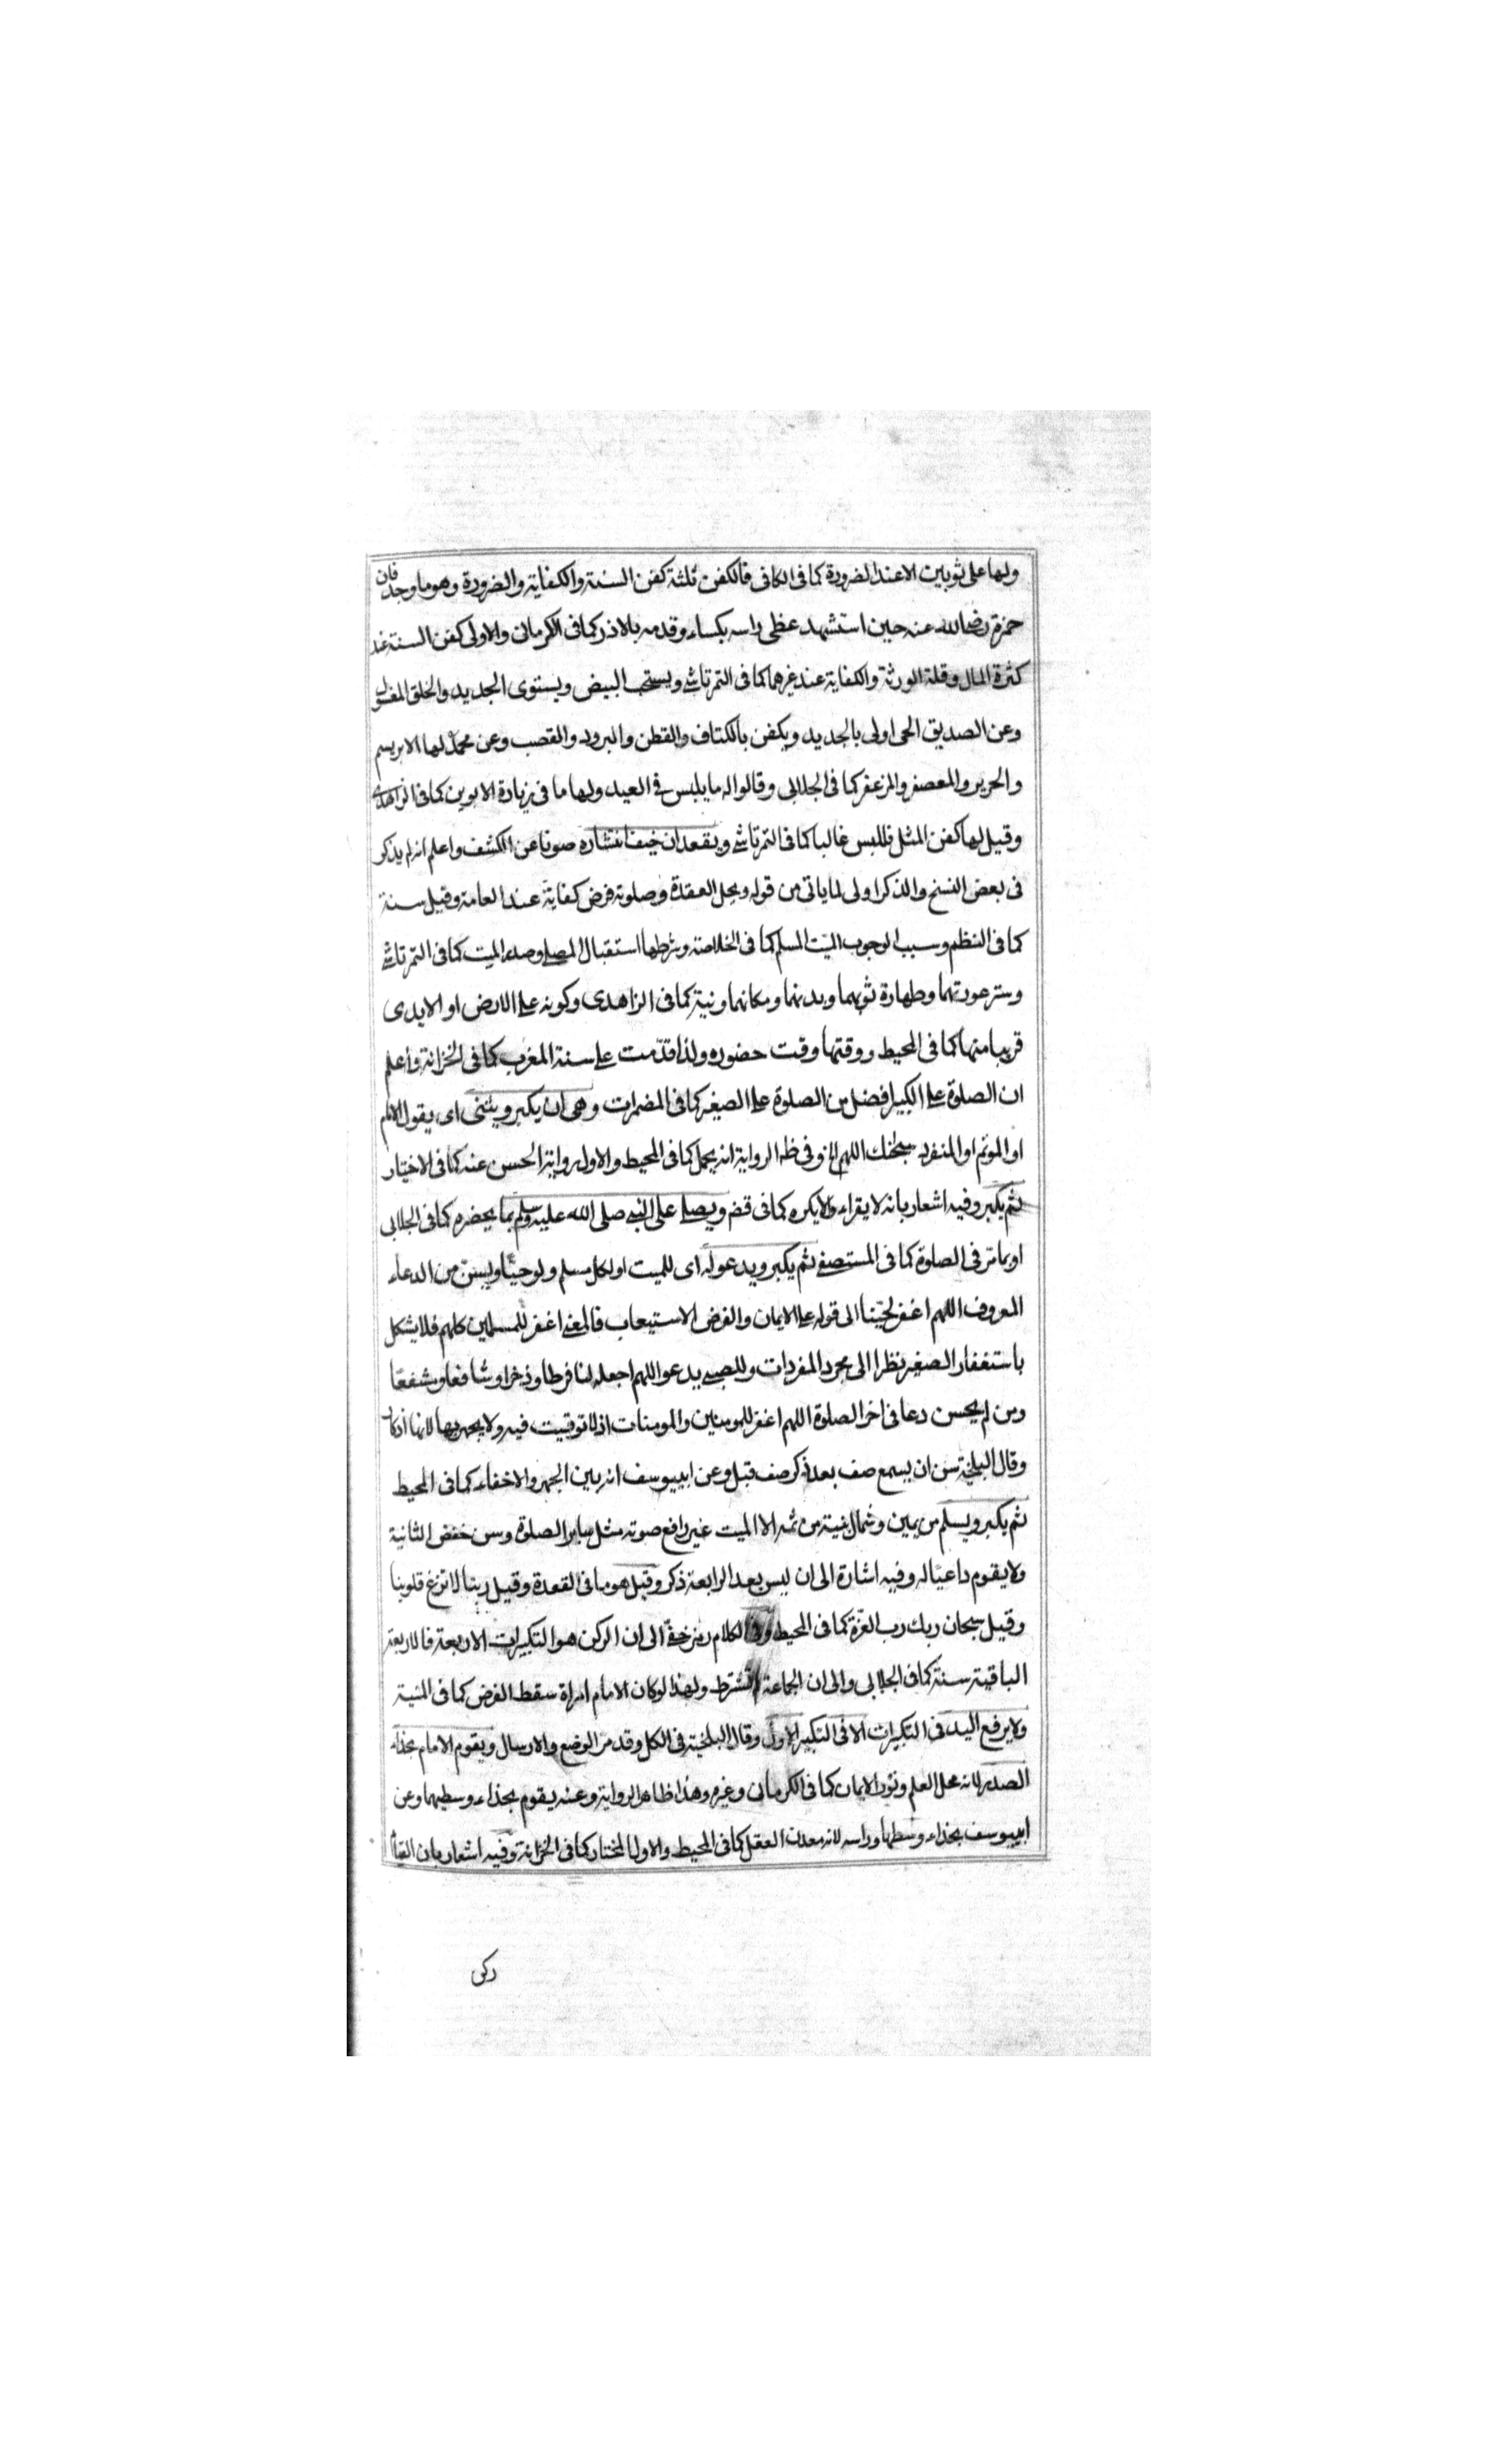 ولها على ثوبين الا عند الضرورة كما فى الكافى فالكفن ثلثة كفن السنة والكفاية والضرورة وهو ما وجد فان
حمزة رضى الله عنه حين استشهد غطى راسه بكساء وقدمه بالاذخر كما فى الكرمانى والاولى كفن السنة عند
كثرة المال وقلة الورثة والكفاية عند غيرهما كما فى التمرتاشى ويستحب البيض ويستوى الجديد والخلق المغسول
وعن الصديق الحى اولى بالجديد ويكفن بالكتان والقطن والبرود والقصب وعن محمد لها الابريسم
والحرير والمعصفر والمزعفر كما فى الجلابى وقالوا له ما يلبس فى العيد ولها ما فى زيارة الابوين كما فى الزاهدى
وقيل لها كفن المثل فللبس غالبا كما فى التمرتاشى ويعقد ان خيف انتشاره صونا عن الكشف واعلم انه لم يذكر
فى بعض النسخ والذكر اولى لما ياتى من قوله ويحل العقدة وصلوته فرض كفاية عند العامة وقيل سنة
كما فى النظم وسبب الوجوب الميت المسلم كما فى الخلاصة وشرطها استقبال المصلى وصدر الميت كما فى التمرتاشى
وستر عورتهما وطهارة ثوبهما وبدنهما ومكانهما ونية كما فى الزاهدى وكونه على الارض او الايدى
قريبا منها كما فى المحيط ووقتها وقت حضوره ولذا قدمت على سنة المغرب كما فى الخزانة واعلم
ان الصلوة على الكبير افضل من الصلوة على الصغير كما فى المضمرات وهى ان يكبر ويثنى اى يقول الامام
او الموتم او المنفرد سبحنك اللهم الخ وفى ظه الرواية انه يحمد كما فى المحيط والاول رواية الحسن عنه كما فى الاختيار
ثم يكبر وفيه اشعار بانه لا يقراء ولا يكره كما فى قض ويصلى على النبى صلى الله عليه وسلم بما يحضره كما فى الجلابى
او بما مر فى الصلوة كما فى المستصفى ثم يكبر ويدعو له اى للميت او لكل مسلم ولو حيا ويسن من الدعاء
المعروف اللهم اغفر لحينا الى قوله على الايمان والغرض الاستيعاب فالمعنى اغفر للمسلمين كلهم فلا يشكل
باستغفار الصغير نظرا الى مجرد المفردات وللصبى يدعو اللهم اجعله لنا فرطا وذخرا وشافعا ومشفعا
ومن لم يحسن دعا فى اخر الصلوة اللهم اغفر للمومنين والمومنات اذ لا توقيت فيه ولا يجهر بها لانها اذكار
وقال البلخية سن ان يسمع صف بعد ذكر صف قبل وعن ابييوسف انه بين الجهر والاخفاء كما فى المحيط
ثم يكبر ويسلم من يمين وشمال بنية من ثمه الا الميت غير رافع صوته مثل ساير الصلوة وسن خفض الثانية
ولا يقوم داعيا له وفيه اشارة الى ان ليس بعد الرابعة ذكر وقيل هو ما فى القعدة وقيل ربنا لا تزغ قلوبنا
وقيل سبحان ربك رب العزة كما فى المحيط وفى الكلام رمز خفى الى ان الركن هو التكبيرات الاربعة فالاربعة
الباقية سنة كما فى الجلابى والى ان الجماعة لا تشترط ولهذا لو كان الامام امراة سقط الفرض كما فى المنية
ولا يرفع اليد فى التكبيرات الا فى التكبير الاول وقال البلخية فى الكل وقد مر الوضع والارسال ويقوم الامام بحذاء
الصدر لانه محل العلم ونور الايمان كما فى الكرمانى وغيره وهذا ظاهر الرواية وعنه يقوم بحذاء وسطيهما وعن
ابييوسف بحذاء وسطها وراسه لانه معدن العقل كما فى المحيط والاول المختار كما فى الخزانة وفيه اشعار بان القيام
ركن